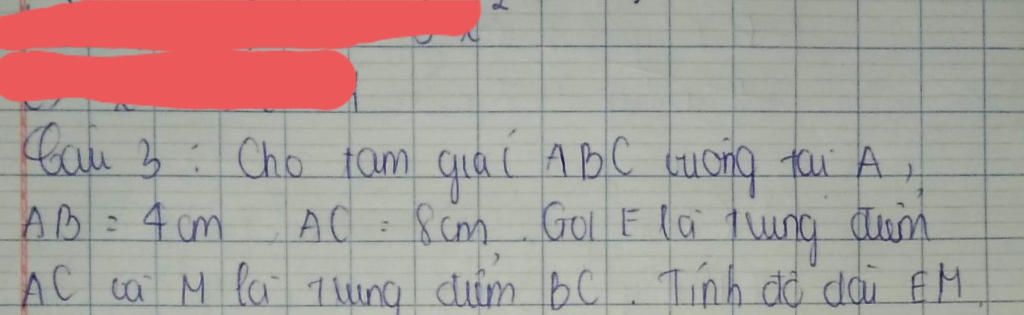 Câu 3 : Cho tam giác ABC vuông tại A,
AB = 4 cm AC = 8cm. Gọi E là trung điểm
AC và M là trung điểm BC. Tính độ dài EM